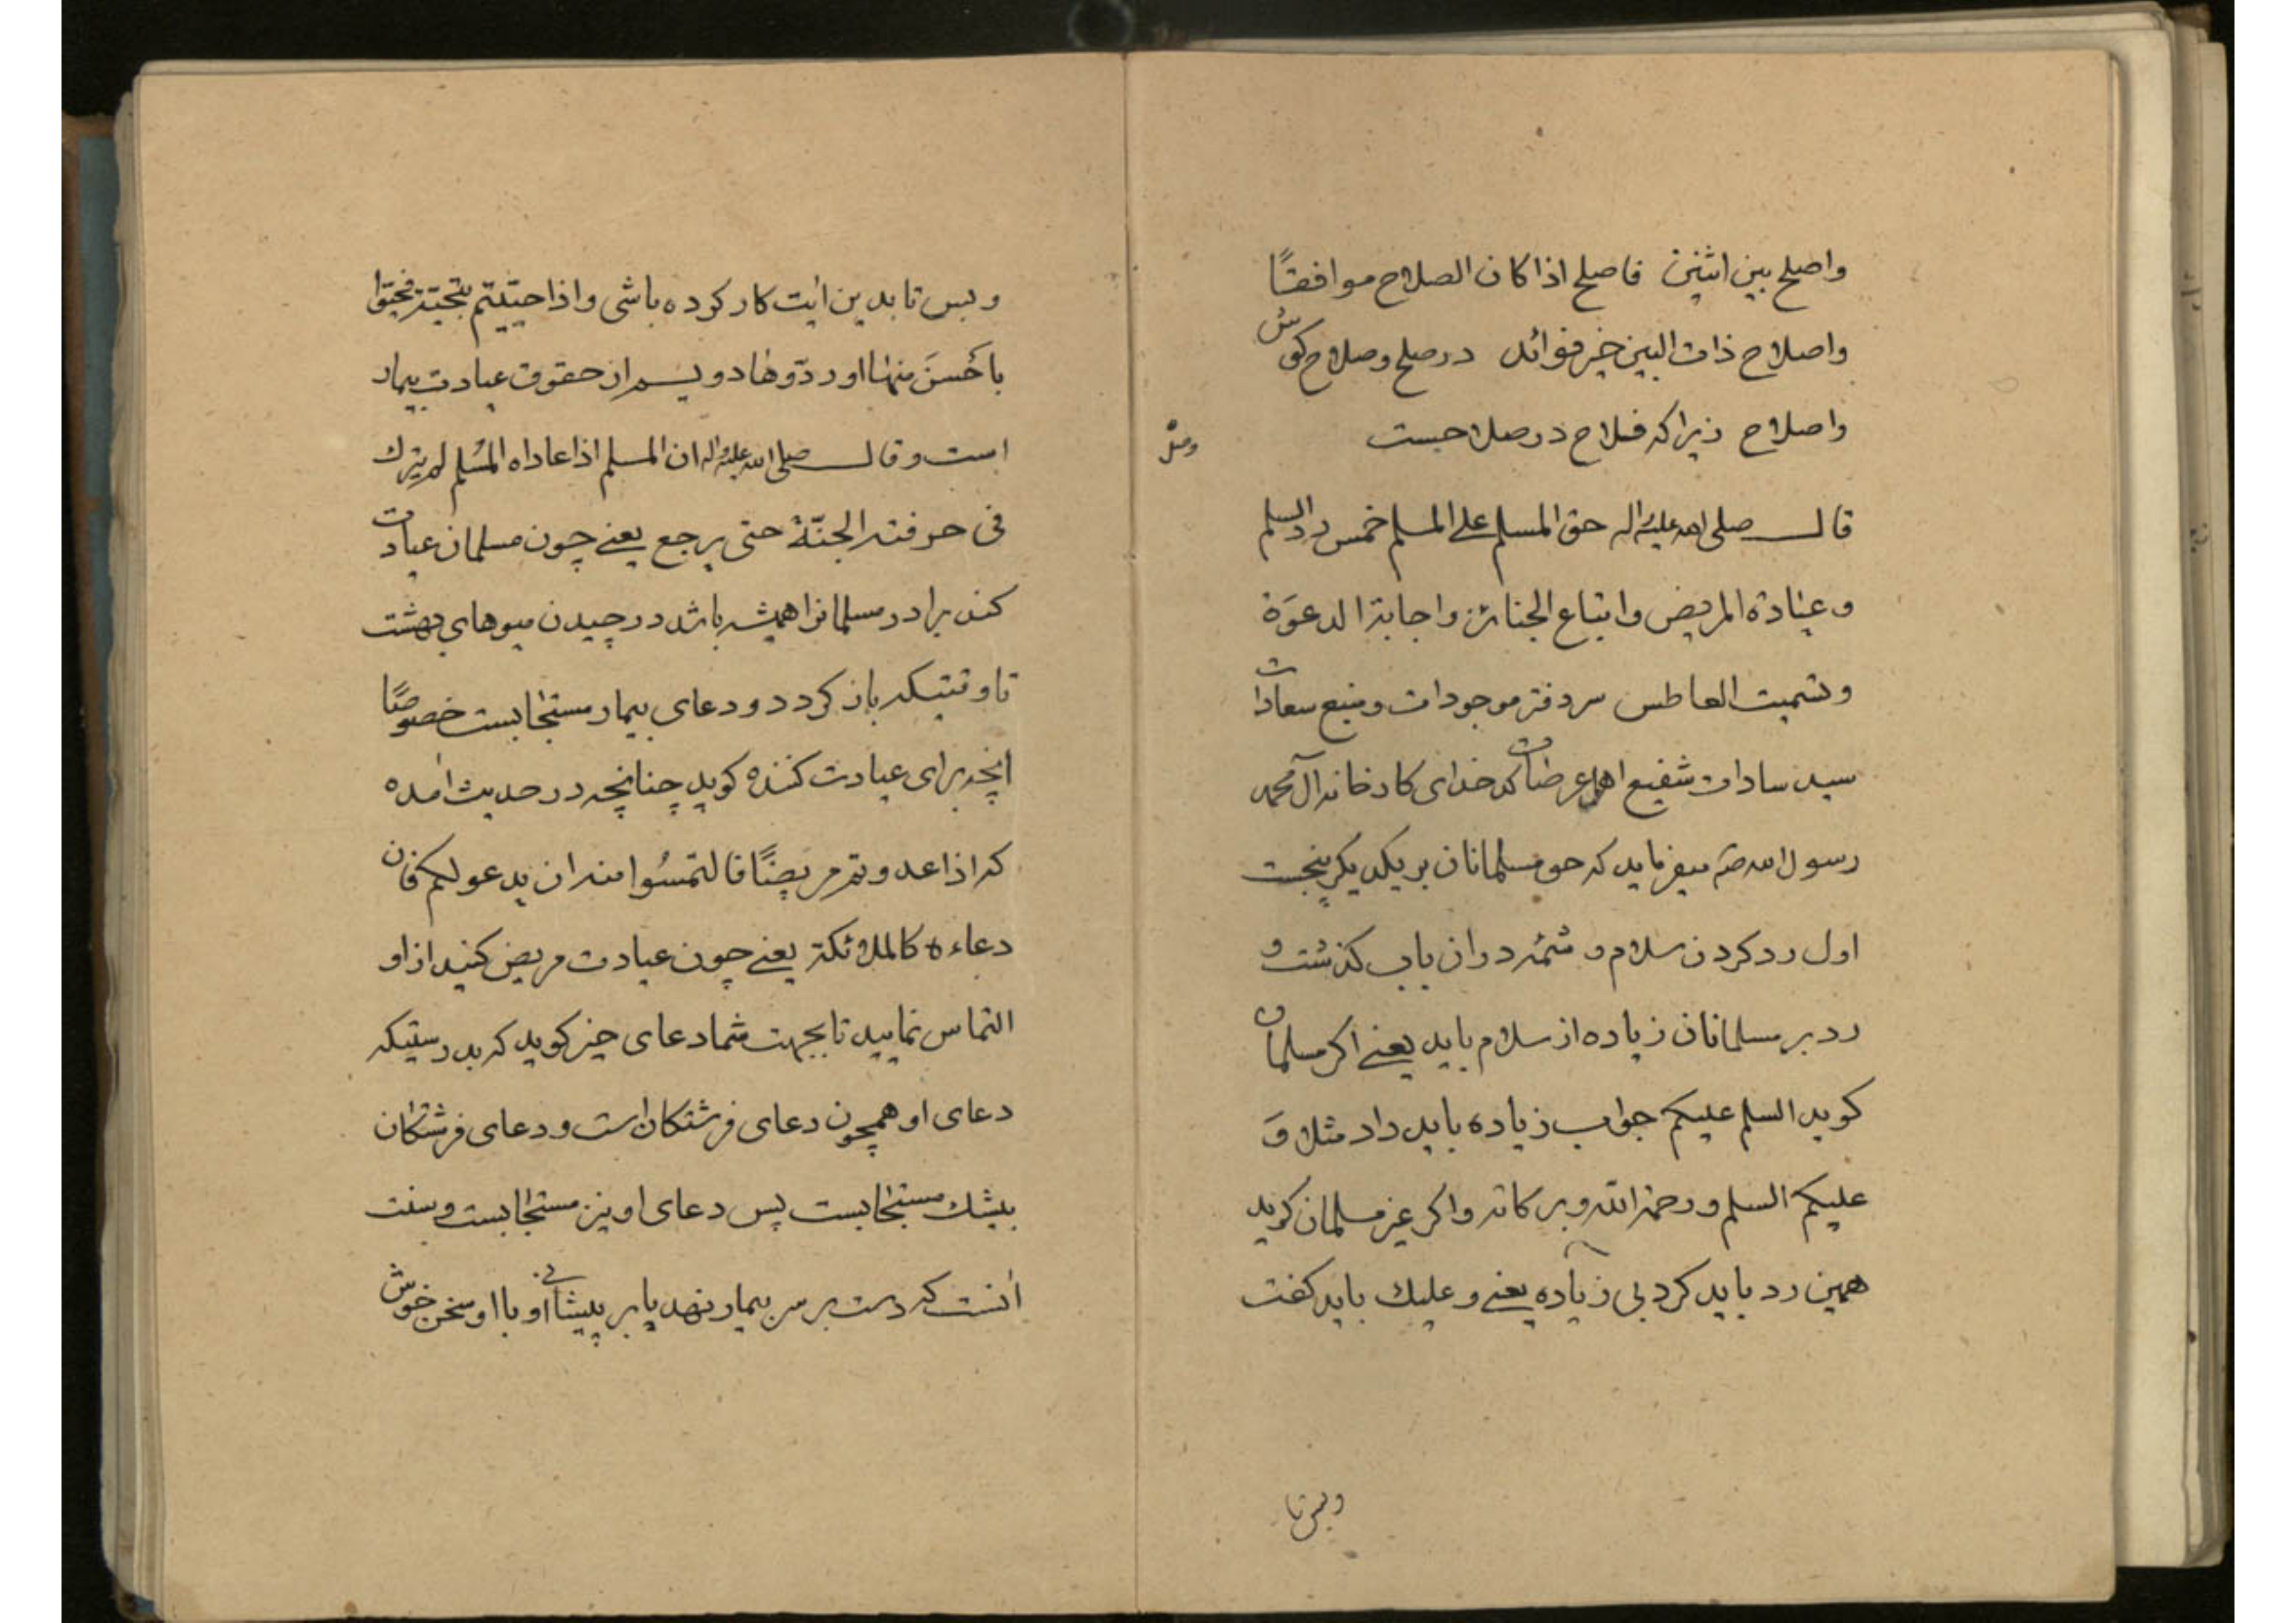 واصلح بین اثنین فاصلح اذا کان الصلاح موافقًا
واصلاح ذات البین خیر فوائد در صلح و صلاح کوش
واصلاح زیرا که فلاح در صلاحست
قال صلی الله علیه واله حق المسلم علی المسلم خمس رد السلم
و عیادة المریض واتباع الجنائز واجابة الدعوَة
وتشمیت العاطس سر دفتر موجودات و منبع سعادات
سید سادات شفیع اهل عرضات کدخدای کارخانه آل محمد
رسول الله صم میفرماید که حق مسلمانان بر یکدیکر پنجست
اول رد کردن سلام و شمّه در ان باب کذشت و
رد بر مسلمانان زیاده از سلام باید یعنے اکر مسلمان
کوید السلم علیکم جواب زیاده باید داد مثلا وَ
علیکم السلم و رحمة الله و برکاته و اکر غیر مسلمان کوید
همین رد باید کرد بی زیاده یعنے و علیك باید کفت
وبس تا
وبس تا بدین ایت کار کرده باشی واذا حیّیتم بتحیّة فحیّوا
باَحسنَ منها او ردّوها دویم از حقوق عیادت بیمار
است وقال صلی الله علیه واله ان المسلم اذا عاد اخاه المسُلم لم یزل
فی خرفة الجنّة حتی یرجع یعنے چون مسلمان عیادت
کند برادر مسلمانرا همیشه باشد در چیدن میوهای بهشت
تا وقتیکه باز کردد و دعای بیمار مستجابست خصوصًا
انچه برای عیادت کننده کوید چنانچه در حدیث امده
که اذا عدوتم مریضًا فالتمسُوا منه ان یدعو لکم فان
دعاءه کالملائکة یعنے چون عیادت مریض کنید از او
التماس نمایید تا بجهت شما دعای خیر کوید که بدرستیکه
دعای او همچون دعای فرشتکان است و دعای فرشتکان
بیشك مستجابست پس دعای او نیز مستجابست و سنت
انست که دست بر سر بیمار نهد یا بر پیشانی او و با او سخن خوش